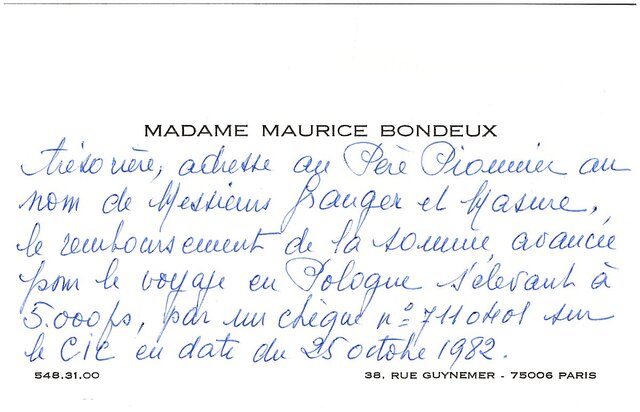 MADAME MAURICE BONDEUX
trésorière, adresse au Père Pionnier au
nom de Messieurs Granger et Masure,
le remboursement de la somme avancée
pour le voyage en Pologne s'élevant à
5.000fs, par un chèque n° 7110401 sur
le CIC en date du 25 octobre 1982.
548.31.00 38, RUE GUYNEMER - 75006 PARIS